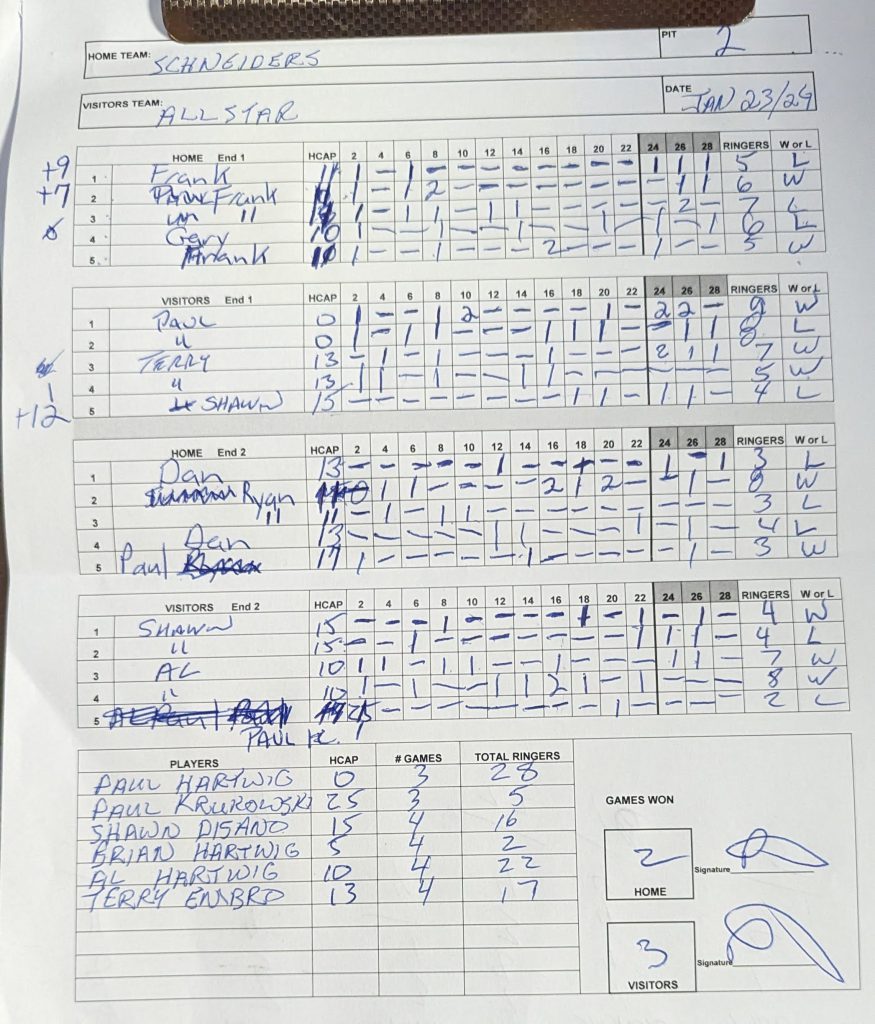 HOME TEAM: SCHNEIDERS PIT 2
VISITORS TEAM: ALLSTAR DATE JAN 23/24
HOME End 1 HCAP 2 4 6 8 10 12 14 16 18 20 22 24 26 28 RINGERS W or L
+9 1 Frank 11 1 - 1 - - - - - - - - 1 1 1 5 L
+7 2 Frank 1 - 1 2 - - - - - - - - 1 1 6 W
3 " 1 - 1 1 - 1 1 - - - - - 2 - 7 L
4 Gary 10 6 L
5 Frank 1 - - 1 - - - 2 - - - 1 - - 5 W
VISITORS End 1 HCAP 2 4 6 8 10 12 14 16 18 20 22 24 26 28 RINGERS W or L
1 PAUL 0 1 - - 1 2 - - - - 1 - 2 2 - 9 W
2 " 0 1 - 1 1 - - - 1 1 1 - - 1 1 8 L
3 TERRY 13 - 1 - 1 - - - 1 - - - 2 1 1 7 W
4 " 13 1 1 - 1 - - 1 1 - - - - - - 5 W
1
+12 5 SHAWN 15 - - - - - - - - 1 1 - 1 1 - 4 L
HOME End 2 HCAP 2 4 6 8 10 12 14 16 18 20 22 24 26 28 RINGERS W or L
1 Dan 13 3 L
2 Ryan 0 1 1 - - - - 2 1 2 - - 1 - 8 W
3 " 11 - 1 - 1 1 - - - - - - - - - 3 L
4 Dan 13 - - - - - 1 1 - - - 1 - 1 - 4 L
5 Paul 17 1 - - - - - 1 - - - - - 1 - 3 W
VISITORS End 2 HCAP 2 4 6 8 10 12 14 16 18 20 22 24 26 28 RINGERS W or L
1 SHAWN 15 - - - 1 - - - - 1 - 1 - 1 - 4 W
2 " 15 - - 1 - - - - - - - 1 1 1 - 4 L
3 AL 10 1 1 - 1 1 - - 1 - - - 1 1 - 7 W
4 " 10 1 - 1 - - 1 1 2 1 - 1 - - - 8 W
5 2 L
PAUL K.
PLAYERS HCAP # GAMES TOTAL RINGERS
PAUL HARTWIG 0 3 28
PAUL KRUROWSKI 25 3 5
SHAWN DISANO 15 4 16
BRIAN HARTWIG 5 4 2
AL HARTWIG 10 4 22
TERRY EMBRO 13 4 17
GAMES WON
2 Signature
HOME
3 Signature
VISITORS